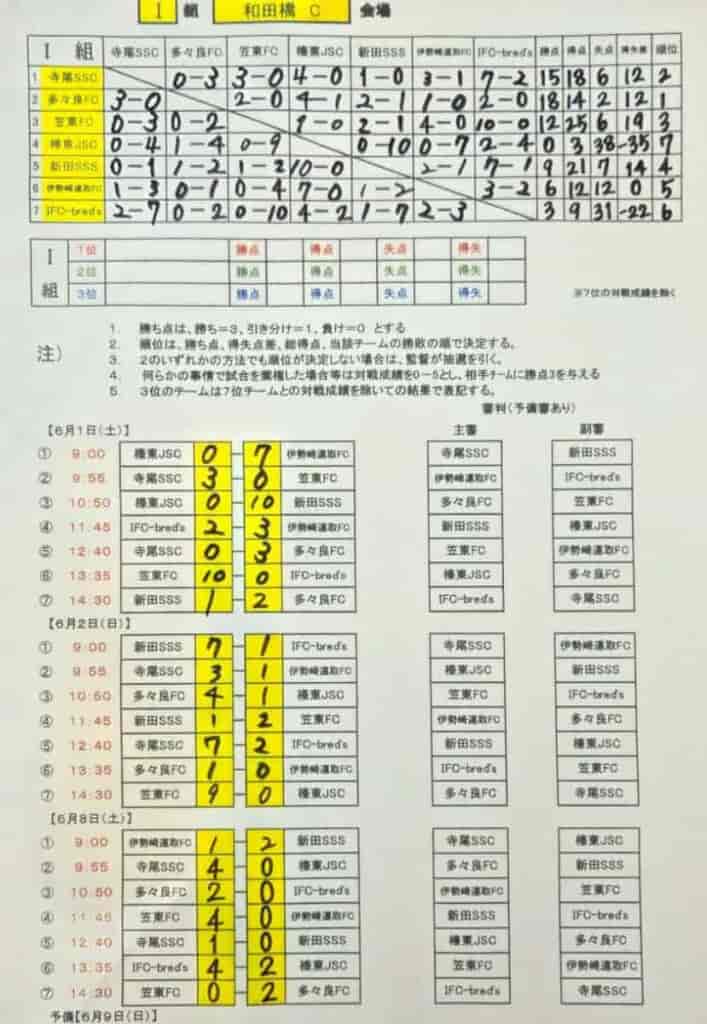 I 組 和田橋 C 会場
I 組 寺尾SSC 多々良FC 笠東FC 榛東JSC 新田SSS 伊勢崎連取FC IFC-bred's 勝点 得点 失点 得失差 順位
1 寺尾SSC 0-3 3-0 4-0 1-0 3-1 7-2 15 18 6 12 2
2 多々良FC 3-0 2-0 4-1 2-1 1-0 2-0 18 14 2 12 1
3 笠東FC 0-3 0-2 9-0 2-1 4-0 10-0 12 25 6 19 3
4 榛東JSC 0-4 1-4 0-9 0-10 0-7 2-4 0 3 38 -35 7
5 新田SSS 0-1 1-2 1-2 10-0 2-1 7-1 9 21 7 14 4
6 伊勢崎連取FC 1-3 0-1 0-4 7-0 1-2 3-2 6 12 12 0 5
7 IFC-bred's 2-7 0-2 0-10 4-2 1-7 2-3 3 9 31 -22 6
I 組
1位 勝点 得点 失点 得失
2位 勝点 得点 失点 得失
3位 勝点 得点 失点 得失
※7位の対戦成績を除く
注)
1. 勝ち点は、勝ち=3、引き分け=1、負け=0 とする
2. 順位は、勝ち点、得失点差、総得点、当該チームの勝敗の順で決定する。
3. 2のいずれかの方法でも順位が決定しない場合は、監督が抽選を引く。
4. 何らかの事情で試合を棄権した場合等は対戦成績を0-5とし、相手チームに勝点3を与える
5. 3位のチームは7位チームとの対戦成績を除いての結果で表記する。
審判(予備審あり)
【6月1日(土)】 主審 副審
① 9:00 榛東JSC 0-7 伊勢崎連取FC 寺尾SSC 新田SSS
② 9:55 寺尾SSC 3-0 笠東FC 伊勢崎連取FC IFC-bred's
③ 10:50 榛東JSC 0-10 新田SSS 多々良FC 笠東FC
④ 11:45 IFC-bred's 2-3 伊勢崎連取FC 新田SSS 榛東JSC
⑤ 12:40 寺尾SSC 0-3 多々良FC 笠東FC 伊勢崎連取FC
⑥ 13:35 笠東FC 10-0 IFC-bred's 榛東JSC 多々良FC
⑦ 14:30 新田SSS 1-2 多々良FC IFC-bred's 寺尾SSC
【6月2日(日)】
① 9:00 新田SSS 7-1 IFC-bred's 寺尾SSC 伊勢崎連取FC
② 9:55 寺尾SSC 3-1 伊勢崎連取FC 榛東JSC 新田SSS
③ 10:50 多々良FC 4-1 榛東JSC 笠東FC IFC-bred's
④ 11:45 新田SSS 1-2 笠東FC 伊勢崎連取FC 多々良FC
⑤ 12:40 寺尾SSC 7-2 IFC-bred's 新田SSS 榛東JSC
⑥ 13:35 多々良FC 1-0 伊勢崎連取FC IFC-bred's 笠東FC
⑦ 14:30 笠東FC 9-0 榛東JSC 多々良FC 寺尾SSC
【6月8日(土)】
① 9:00 伊勢崎連取FC 1-2 新田SSS 寺尾SSC 榛東JSC
② 9:55 寺尾SSC 4-0 榛東JSC 多々良FC 新田SSS
③ 10:50 多々良FC 2-0 IFC-bred's 伊勢崎連取FC 笠東FC
④ 11:45 笠東FC 4-0 伊勢崎連取FC 新田SSS IFC-bred's
⑤ 12:40 寺尾SSC 1-0 新田SSS 榛東JSC 多々良FC
⑥ 13:35 IFC-bred's 4-2 榛東JSC 笠東FC 伊勢崎連取FC
⑦ 14:30 笠東FC 0-2 多々良FC IFC-bred's 寺尾SSC
予備【6月9日(日)】